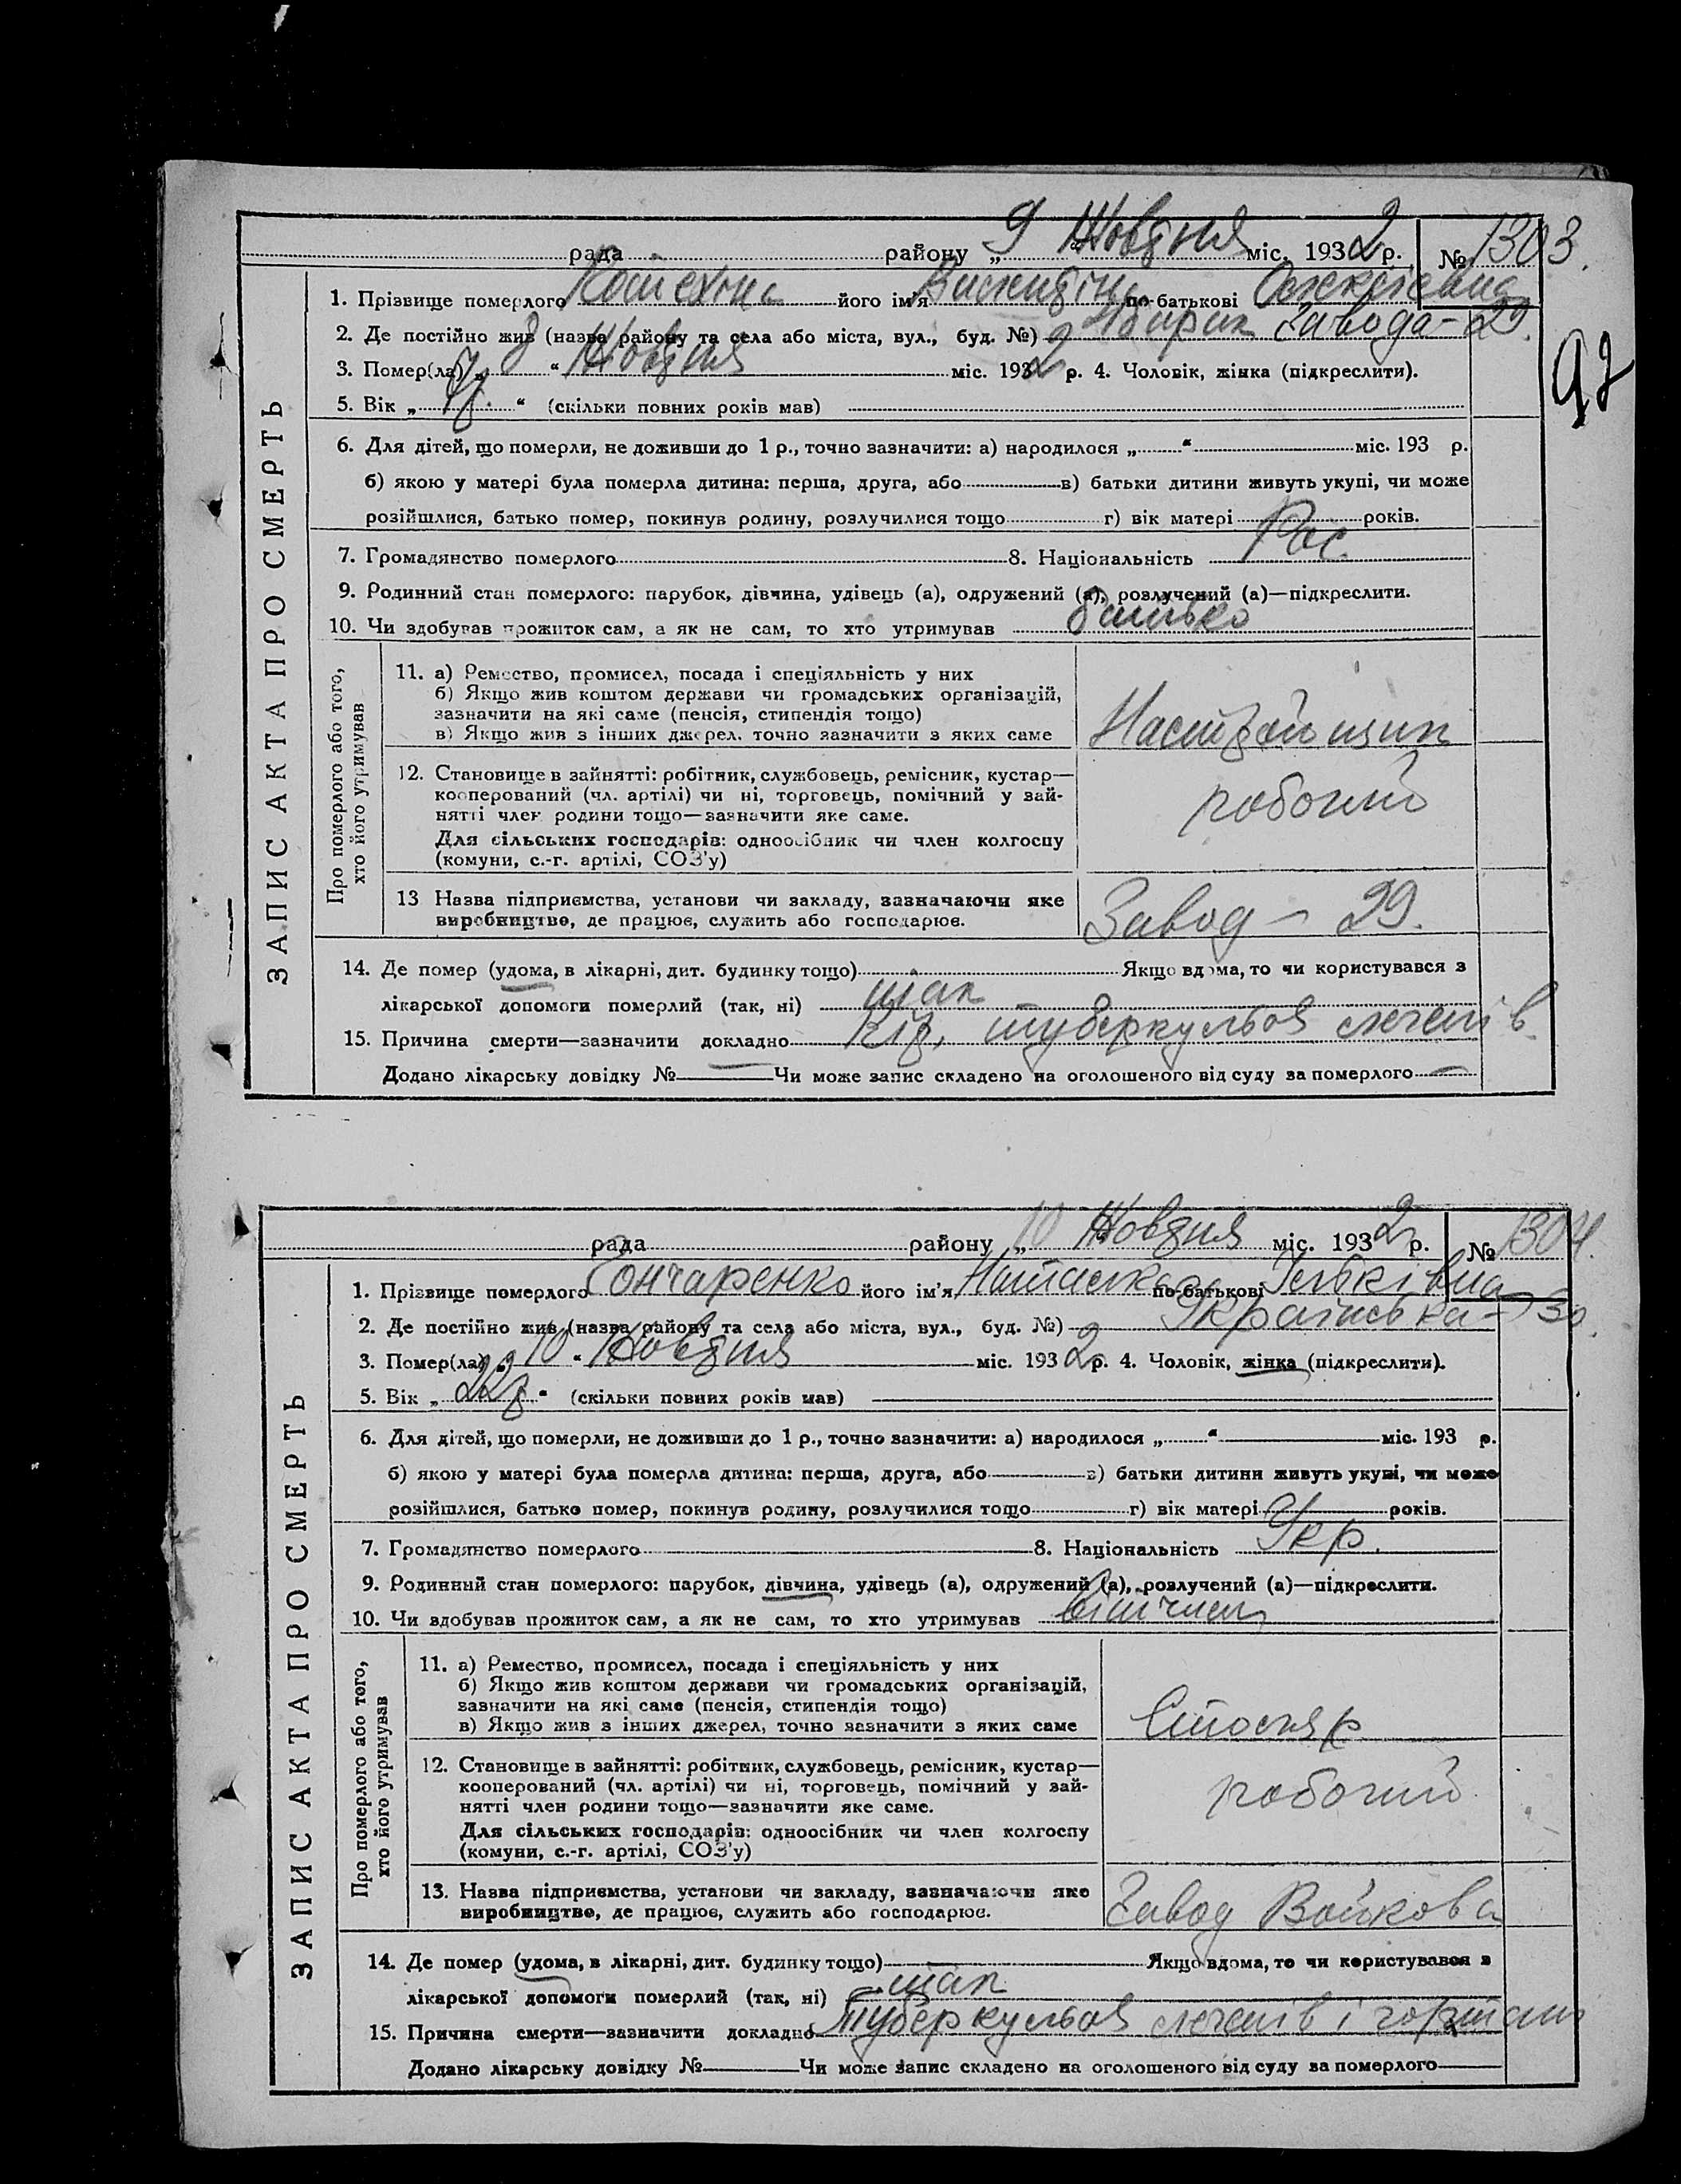 рада району „ 9 " Жовтня міс. 1932 р. № 1303.
97
ЗАПИС АКТА ПРО СМЕРТЬ
1. Прізвище померлого його ім'я по-батькові
2. Де постійно жив (назва району та села або міста, вул., буд. №) Завода-29.
3. Помер(ла) „ 8 " Жовтня міс. 1932 р. 4. Чоловік, жінка (підкреслити).
5. Вік „ " (скільки повних років мав)
6. Для дітей, що померли, не доживши до 1 р., точно зазначити: а) народилося „ " міс. 193 р.
б) якою у матері була померла дитина: перша, друга, або в) батьки дитини живуть укупі, чи може
розійшлися, батько помер, покинув родину, розлучилися тощо г) вік матері років.
7. Громадянство померлого 8. Національність Рос.
9. Родинний стан померлого: парубок, дівчина, удівець (а), одружений (а), розлучений (а)—підкреслити.
10. Чи здобував прожиток сам, а як не сам, то хто утримував батько
Про померлого або того, хто його утримував
11. а) Ремество, промисел, посада і спеціяльність у них
б) Якщо жив коштом держави чи громадських організацій,
зазначити на які саме (пенсія, стипендія тощо)
в) Якщо жив з інших джерел, точно зазначити з яких саме
12. Становище в зайнятті: робітник, службовець, ремісник, кустар—
кооперований (чл. артілі) чи ні, торговець, помічний у зай-
нятті член родини тощо—зазначити яке саме.
Для сільських господарів: одноосібник чи член колгоспу
(комуни, с.-г. артілі, СОЗ'у)
робочий
13 Назва підприємства, установи чи закладу, зазначаючи яке
виробництво, де працює, служить або господарює.
Завод — 29.
14. Де помер (удома, в лікарні, дит. будинку тощо) Якщо вдома, то чи користувався з
лікарської допомоги померлий (так, ні) так
15. Причина смерти—зазначити докладно туберкульоз легенів
Додано лікарську довідку № Чи може запис складено на оголошеного від суду за померлого
рада району „ 10 " Жовтня міс. 1932 р. № 1304.
ЗАПИС АКТА ПРО СМЕРТЬ
1. Прізвище померлого Гончаренко його ім'я по-батькові
2. Де постійно жив (назва району та села або міста, вул., буд. №) Українська - 30.
3. Помер(ла) „ 10 " Жовтня міс. 1932 р. 4. Чоловік, жінка (підкреслити).
5. Вік „ 22 р. " (скільки повних років мав)
6. Для дітей, що померли, не доживши до 1 р., точно зазначити: а) народилося „ " міс. 193 р.
б) якою у матері була померла дитина: перша, друга, або в) батьки дитини живуть укупі, чи може
розійшлися, батько помер, покинув родину, розлучилися тощо г) вік матері років.
7. Громадянство померлого 8. Національність Укр.
9. Родинний стан померлого: парубок, дівчина, удівець (а), одружений (а), розлучений (а)—підкреслити.
10. Чи здобував прожиток сам, а як не сам, то хто утримував вітчим
Про померлого або того, хто його утримував
11. а) Ремество, промисел, посада і спеціяльність у них
б) Якщо жив коштом держави чи громадських організацій,
зазначити на які саме (пенсія, стипендія тощо)
в) Якщо жив з інших джерел, точно зазначити з яких саме
Столяр
12. Становище в зайнятті: робітник, службовець, ремісник, кустар—
кооперований (чл. артілі) чи ні, торговець, помічний у зай-
нятті член родини тощо—зазначити яке саме.
Для сільських господарів: одноосібник чи член колгоспу
(комуни, с.-г. артілі, СОЗ'у)
робочий
13. Назва підприємства, установи чи закладу, зазначаючи яке
виробництво, де працює, служить або господарює.
Завод Войкова
14. Де помер (удома, в лікарні, дит. будинку тощо) Якщо вдома, то чи користувався з
лікарської допомоги померлий (так, ні) так
15. Причина смерти—зазначити докладно Туберкульоз легенів і гортані
Додано лікарську довідку № Чи може запис складено на оголошеного від суду за померлого